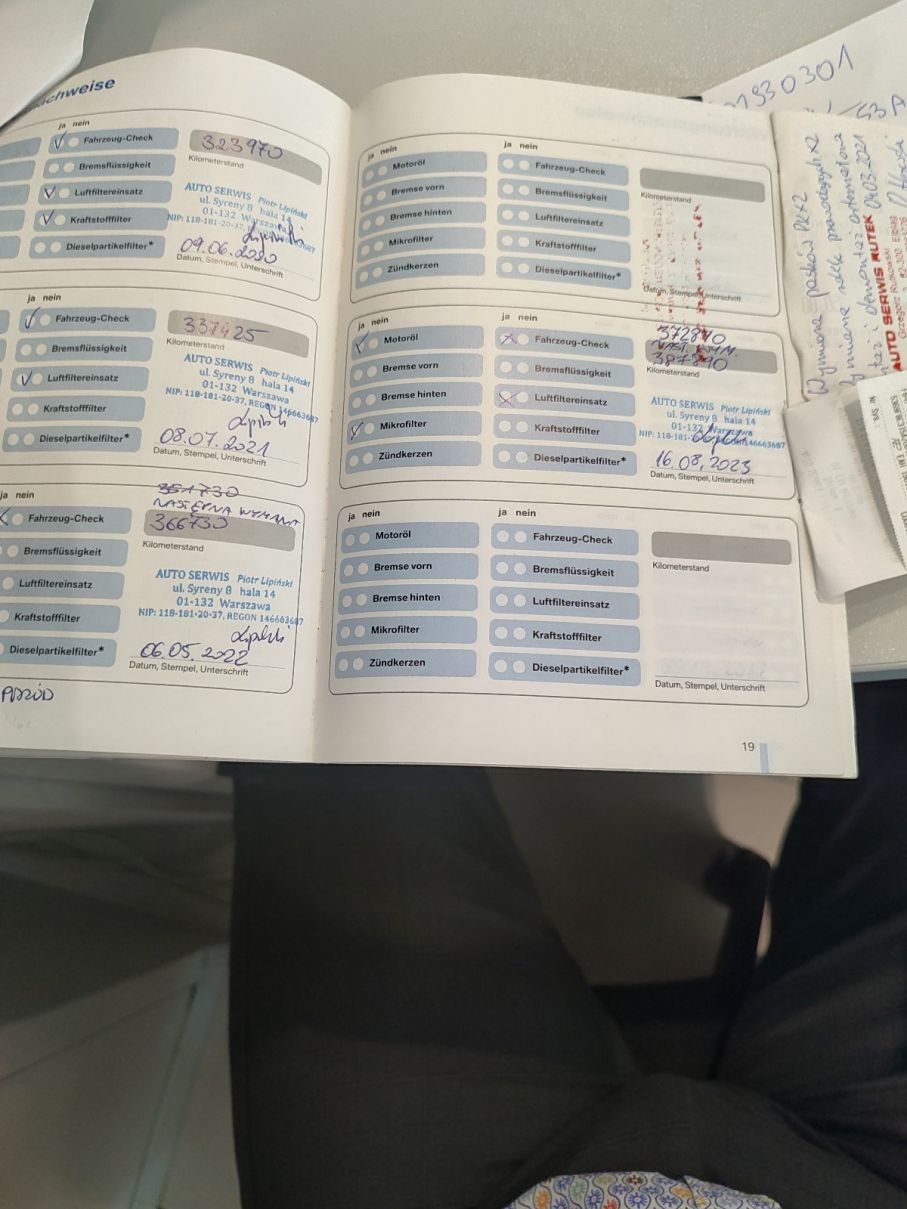 nachweise
ja nein
Fahrzeug-Check
Bremsflüssigkeit
Luftfiltereinsatz
Kraftstofffilter
Dieselpartikelfilter*
323970
Kilometerstand
AUTO SERWIS Piotr Lipiński
ul. Syreny 8 hala 14
01-132 Warszawa
NIP: 118-181-20-37,
09.06.2020
Datum, Stempel, Unterschrift
ja nein
Fahrzeug-Check
Bremsflüssigkeit
Luftfiltereinsatz
Kraftstofffilter
Dieselpartikelfilter*
337425
Kilometerstand
AUTO SERWIS Piotr Lipiński
ul. Syreny 8 hala 14
01-132 Warszawa
NIP: 118-181-20-37, REGON 146663687
08.07.2021
Datum, Stempel, Unterschrift
ja nein
Fahrzeug-Check
Bremsflüssigkeit
Luftfiltereinsatz
Kraftstofffilter
Dieselpartikelfilter*
351730
NASTĘPNA WYMIANA
366730
Kilometerstand
AUTO SERWIS Piotr Lipiński
ul. Syreny 8 hala 14
01-132 Warszawa
NIP: 118-181-20-37, REGON 146663687
06.05.2022
Datum, Stempel, Unterschrift
ja nein
Motoröl
Bremse vorn
Bremse hinten
Mikrofilter
Zündkerzen
ja nein
Fahrzeug-Check
Bremsflüssigkeit
Luftfiltereinsatz
Kraftstofffilter
Dieselpartikelfilter*
Kilometerstand
Datum, Stempel, Unterschrift
ja nein
Motoröl
Bremse vorn
Bremse hinten
Mikrofilter
Zündkerzen
ja nein
Fahrzeug-Check
Bremsflüssigkeit
Luftfiltereinsatz
Kraftstofffilter
Dieselpartikelfilter*
372840
NAST. WYM.
387840
Kilometerstand
AUTO SERWIS Piotr Lipiński
ul. Syreny 8 hala 14
01-132 Warszawa
NIP: 118-181- 146663687
16.08.2023
Datum, Stempel, Unterschrift
ja nein
Motoröl
Bremse vorn
Bremse hinten
Mikrofilter
Zündkerzen
ja nein
Fahrzeug-Check
Bremsflüssigkeit
Luftfiltereinsatz
Kraftstofffilter
Dieselpartikelfilter*
Kilometerstand
Datum, Stempel, Unterschrift
19
1930301
Wymiana pasków PK x2
AUTO SERWIS RUTEK
04.03.2021